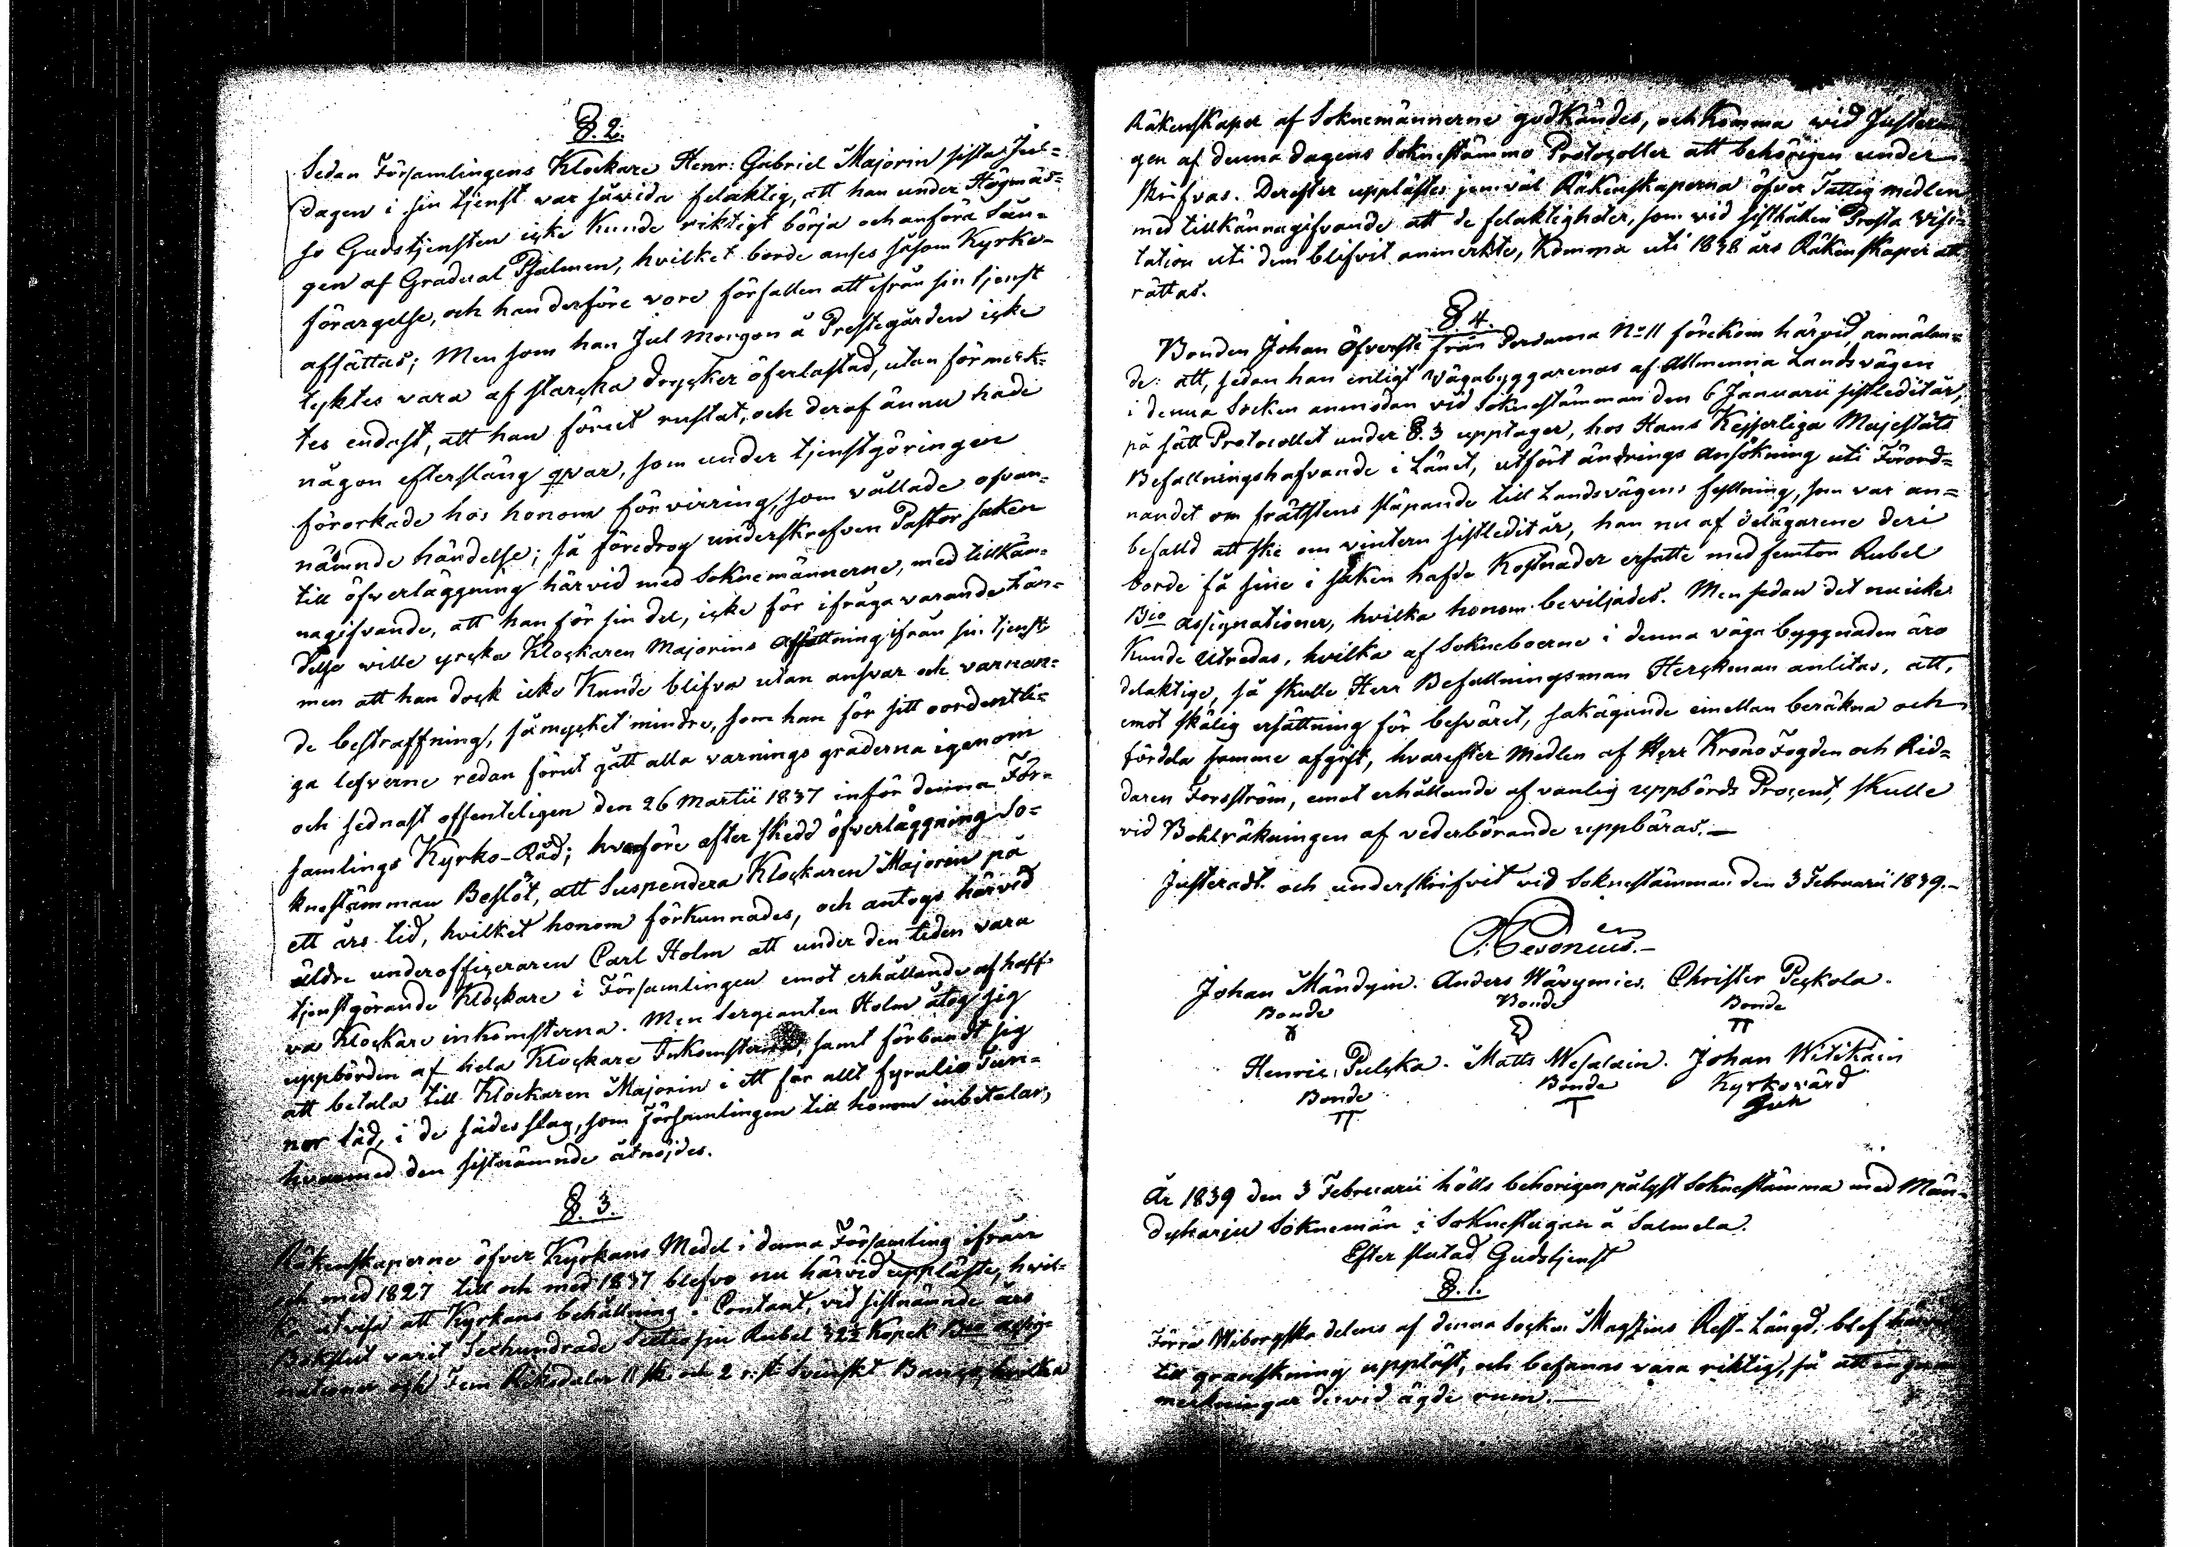 §. 2.
Sedan Församlingens Klockare Henr: Gabriel Majorin sista Jul=
dagen i sin tjenst var såvida felaktig, att han under Högmäs=
so Gudstjensten icke kunde riktigt börja och anföra Sån=
gen af Gradual Psalmen, hvilket borde anses såsom Kyrko=
förargelse, och han derföre vore förfallen att ifrån sin tjenst
afsättas; Men som han Jul morgon å Prestegården icke
tycktes vara af starcka drycker öferlastad, utan förmerk=
tes endast, att han förut rustat, och deraf ännu hade
någon eftersläng qvar, som under tjenstgöringen
förorkade hos honom förvirring, som vållade ofvan=
nämnde händelse; så föredrog underskrefven Pastor saken
till öfverläggning härvid med Soknemännerne, med tillkän=
nagifvande, att han för sin del, icke för ifråga varande hän=
delse wille yrcka Klockaren Majorins afsättning ifrån sin tjenst
men att han dock icke kunde blifva utan ansvar och varnan=
de bestraffning, så mycket mindre, som han för sitt oordentli=
ga lefverne redan förut gått alla varnings graderna igenom
och sednast offenteligen den 26 Martii 1837 inför denna För=
samlings Kyrko-Råd; hvarföre efter skedd öfverläggning So=
knestämman Beslöt, att Suspendera Klockaren Majorin på
ett års tid, hvilket honom förkunnades, och antogs härvid
äldre underofficeraren Carl Holm att under den tiden vara
tjenstgörande Klockare i Församlingen emot erhållande af half=
va Klockare inkomsterna. Men Sergianten Holm åtog sig
uppbörden af hela Klockare Inkomsterna, samt förbandt sig
att betala till Klockaren Majorin i ett för allt fyratio Tun=
nor säd, i de sädesslag, som Församlingen till honom inbetalar,
hvarmed den sistnämnde åtnöjdes.
§. 3.
Räkenskaperne öfver Kyrkans Medel i denna Församling ifrån
och med 1827 till och med 1837 blefvo nu härvid uppläste, hvil=
ka utvisa att Kyrkans behållning i Contant, vid sistnämnde års
Bokslut varit Sexhundrade Kopek Bco assig=
nationer och Fem Riksdaler 11 sk. och 2 r.st. Svenskt Banco, hvilka
Räkenskaper af Soknemännerne godkändes, och komma vid Justerin
gen af denna dagens Soknestämmo Protocoller att behörigen under=
skrifvas. Derefter upplästes jemväl Räkenskaperna öfver Fattig medlen
med tillkännagifvande att de felaktigheter, som vid sisthållen Prosta Visi=
tation uti dem blifvit anmerkte, komma uti 1838 års Räkenskaper att
rättas.
§. 4.
Bonden Johan Öfverste från No 11 förekom härvid, anmälan=
de: att, sedan han enligt vägabyggarenas af Allmenna Landsvägen
i denna Socken anmodan vid Soknestämman den 6 Januarii sistledit år,
på sätt Protocollet under §. 3 upptager, hos Hans Kejserliga Majestäts
Befallningshafvande i Länet, utfört ändrings ansökning uti Förord=
nandet om släpande till Landsvägens fyllning, som var an=
befalld att ske om vintern sistledit år, han nu af delägarene deri
borde få sine i saken hafde Kostnader ersatte med femton Rubel
Bco Assignationer, hvilka honom beviljades. Men sedan det nu icke
kunde utredas, hvilka af Sokneboerne i denna väga byggnaden äro
delaktige, så skulle Herr Befallningsman Herckman anlitas, att,
emot skälig ersättning för besväret, sakägande emellan beräkna och
fördela samme afgift, hvarefter Medlen af Herr Krono Fogden och Rid=
daren Forsström, emot erhållande af vanlig uppbörds Procent, skulle
vid Bohlräkningen af vederbörande uppbäras.—
Justeradt och underskrifvit vid Soknestämman den 3 Februarii 1839.—
Johan Mändyin. Anders Häyrynies. Christer Peckola.
Bonde Bonde Bonde
Henric Pulcka. Matts Wesalain. Johan Witikain
Bonde Bonde Kyrkovärd
År 1839 den 3 Februarii hölls behörigen pålyst Soknestämma med Män=
dyharju Soknemän i Soknestugan å Salmela.
Efter slutad Gudstjenst
§. 1.
Förra Wiborgska delens af denna Socken Magzins Rest-Längd, blef
till granskning uppläst, och befanns vara riktig, så att
merkningar dervid ägde rum.—